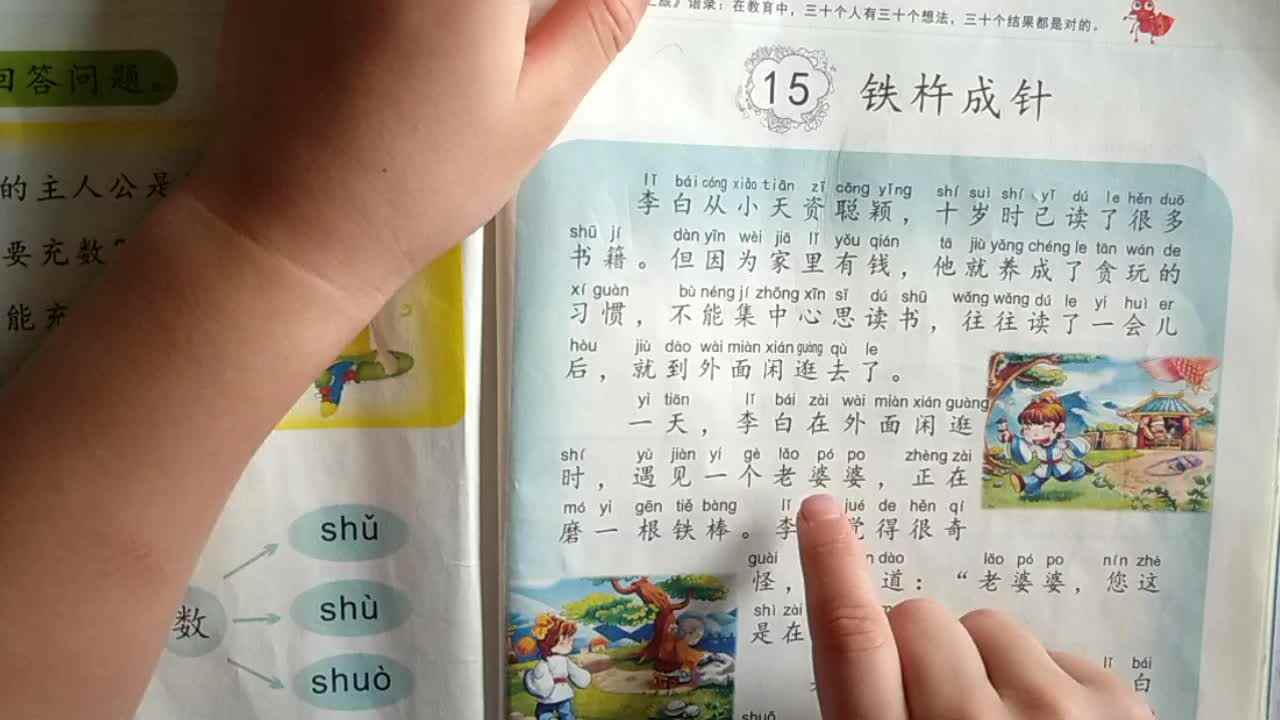 》语录：在教育中，三十个人有三十个想法，三十个结果都是对的。
回答问题。
的主人公是
要充数？
能充
shǔ
数
shù
shuò
15 铁杵成针
lǐ bái cóng xiǎo tiān zī cōng yǐng shí suì shí yǐ dú le hěn duō
李白从小天资聪颖，十岁时已读了很多
shū jí dàn yīn wèi jiā lǐ yǒu qián tā jiù yǎng chéng le tān wán de
书籍。但因为家里有钱，他就养成了贪玩的
xí guàn bù néng jí zhōng xīn sī dú shū wǎng wǎng dú le yí huì er
习惯，不能集中心思读书，往往读了一会儿
hòu jiù dào wài miàn xián guàng qù le
后，就到外面闲逛去了。
yì tiān lǐ bái zài wài miàn xián guàng
一天，李白在外面闲逛
shí yù jiàn yí gè lǎo pó po zhèng zài
时，遇见一个老婆婆，正在
mó yì gēn tiě bàng lǐ jué de hěn qí
磨一根铁棒。李觉得很奇
guài dào lǎo pó po nín zhè
怪，道：“老婆婆，您这
shì zài
是在
lǐ bái
白
shuō